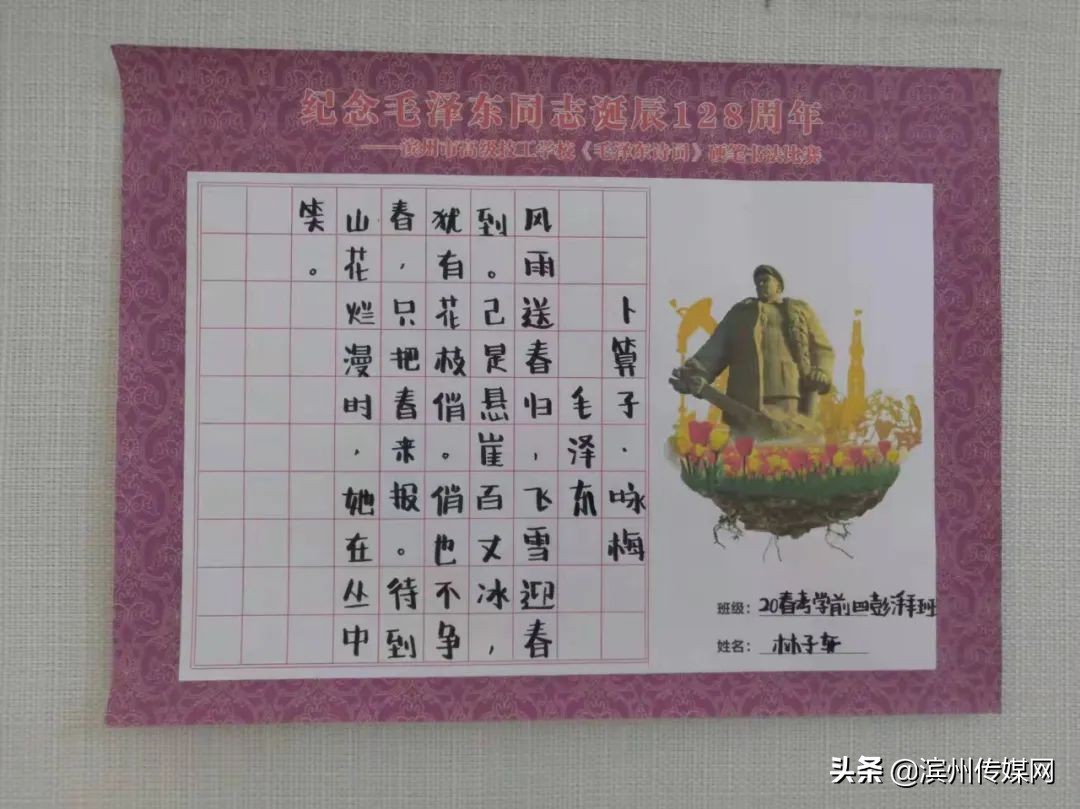 纪念毛泽东同志诞辰128周年
——滨州市高级技工学校《毛泽东诗词》硬笔书法比赛
卜算子·咏梅
毛泽东
风雨送春归，飞雪迎春
到。己是悬崖百丈冰，
犹有花枝俏。俏也不争
春，只把春来报。待到
山花烂漫时，她在丛中
笑。
班级：20春考学前四彭湃班
姓名：林子轩
头条 @滨州传媒网